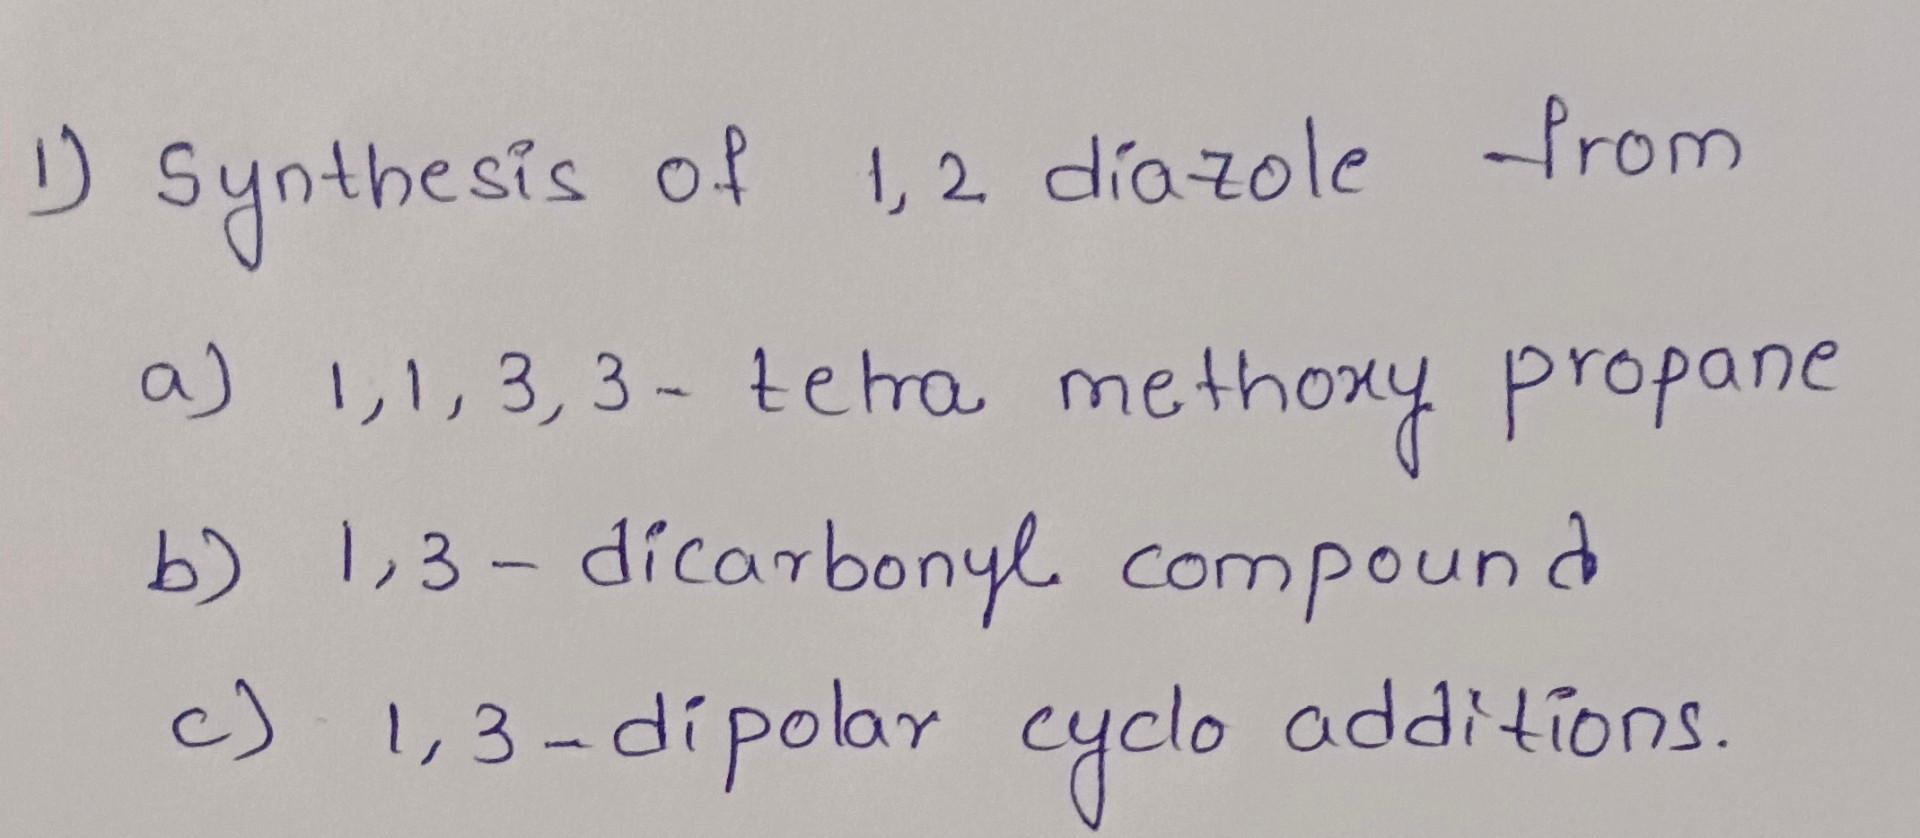 1) Synthesis of 1,2 diazole from
a) 1,1,3,3- tetra methoxy propane
b) 1,3 - dicarbonyl compound
c) 1,3 - dipolar cyclo additions.